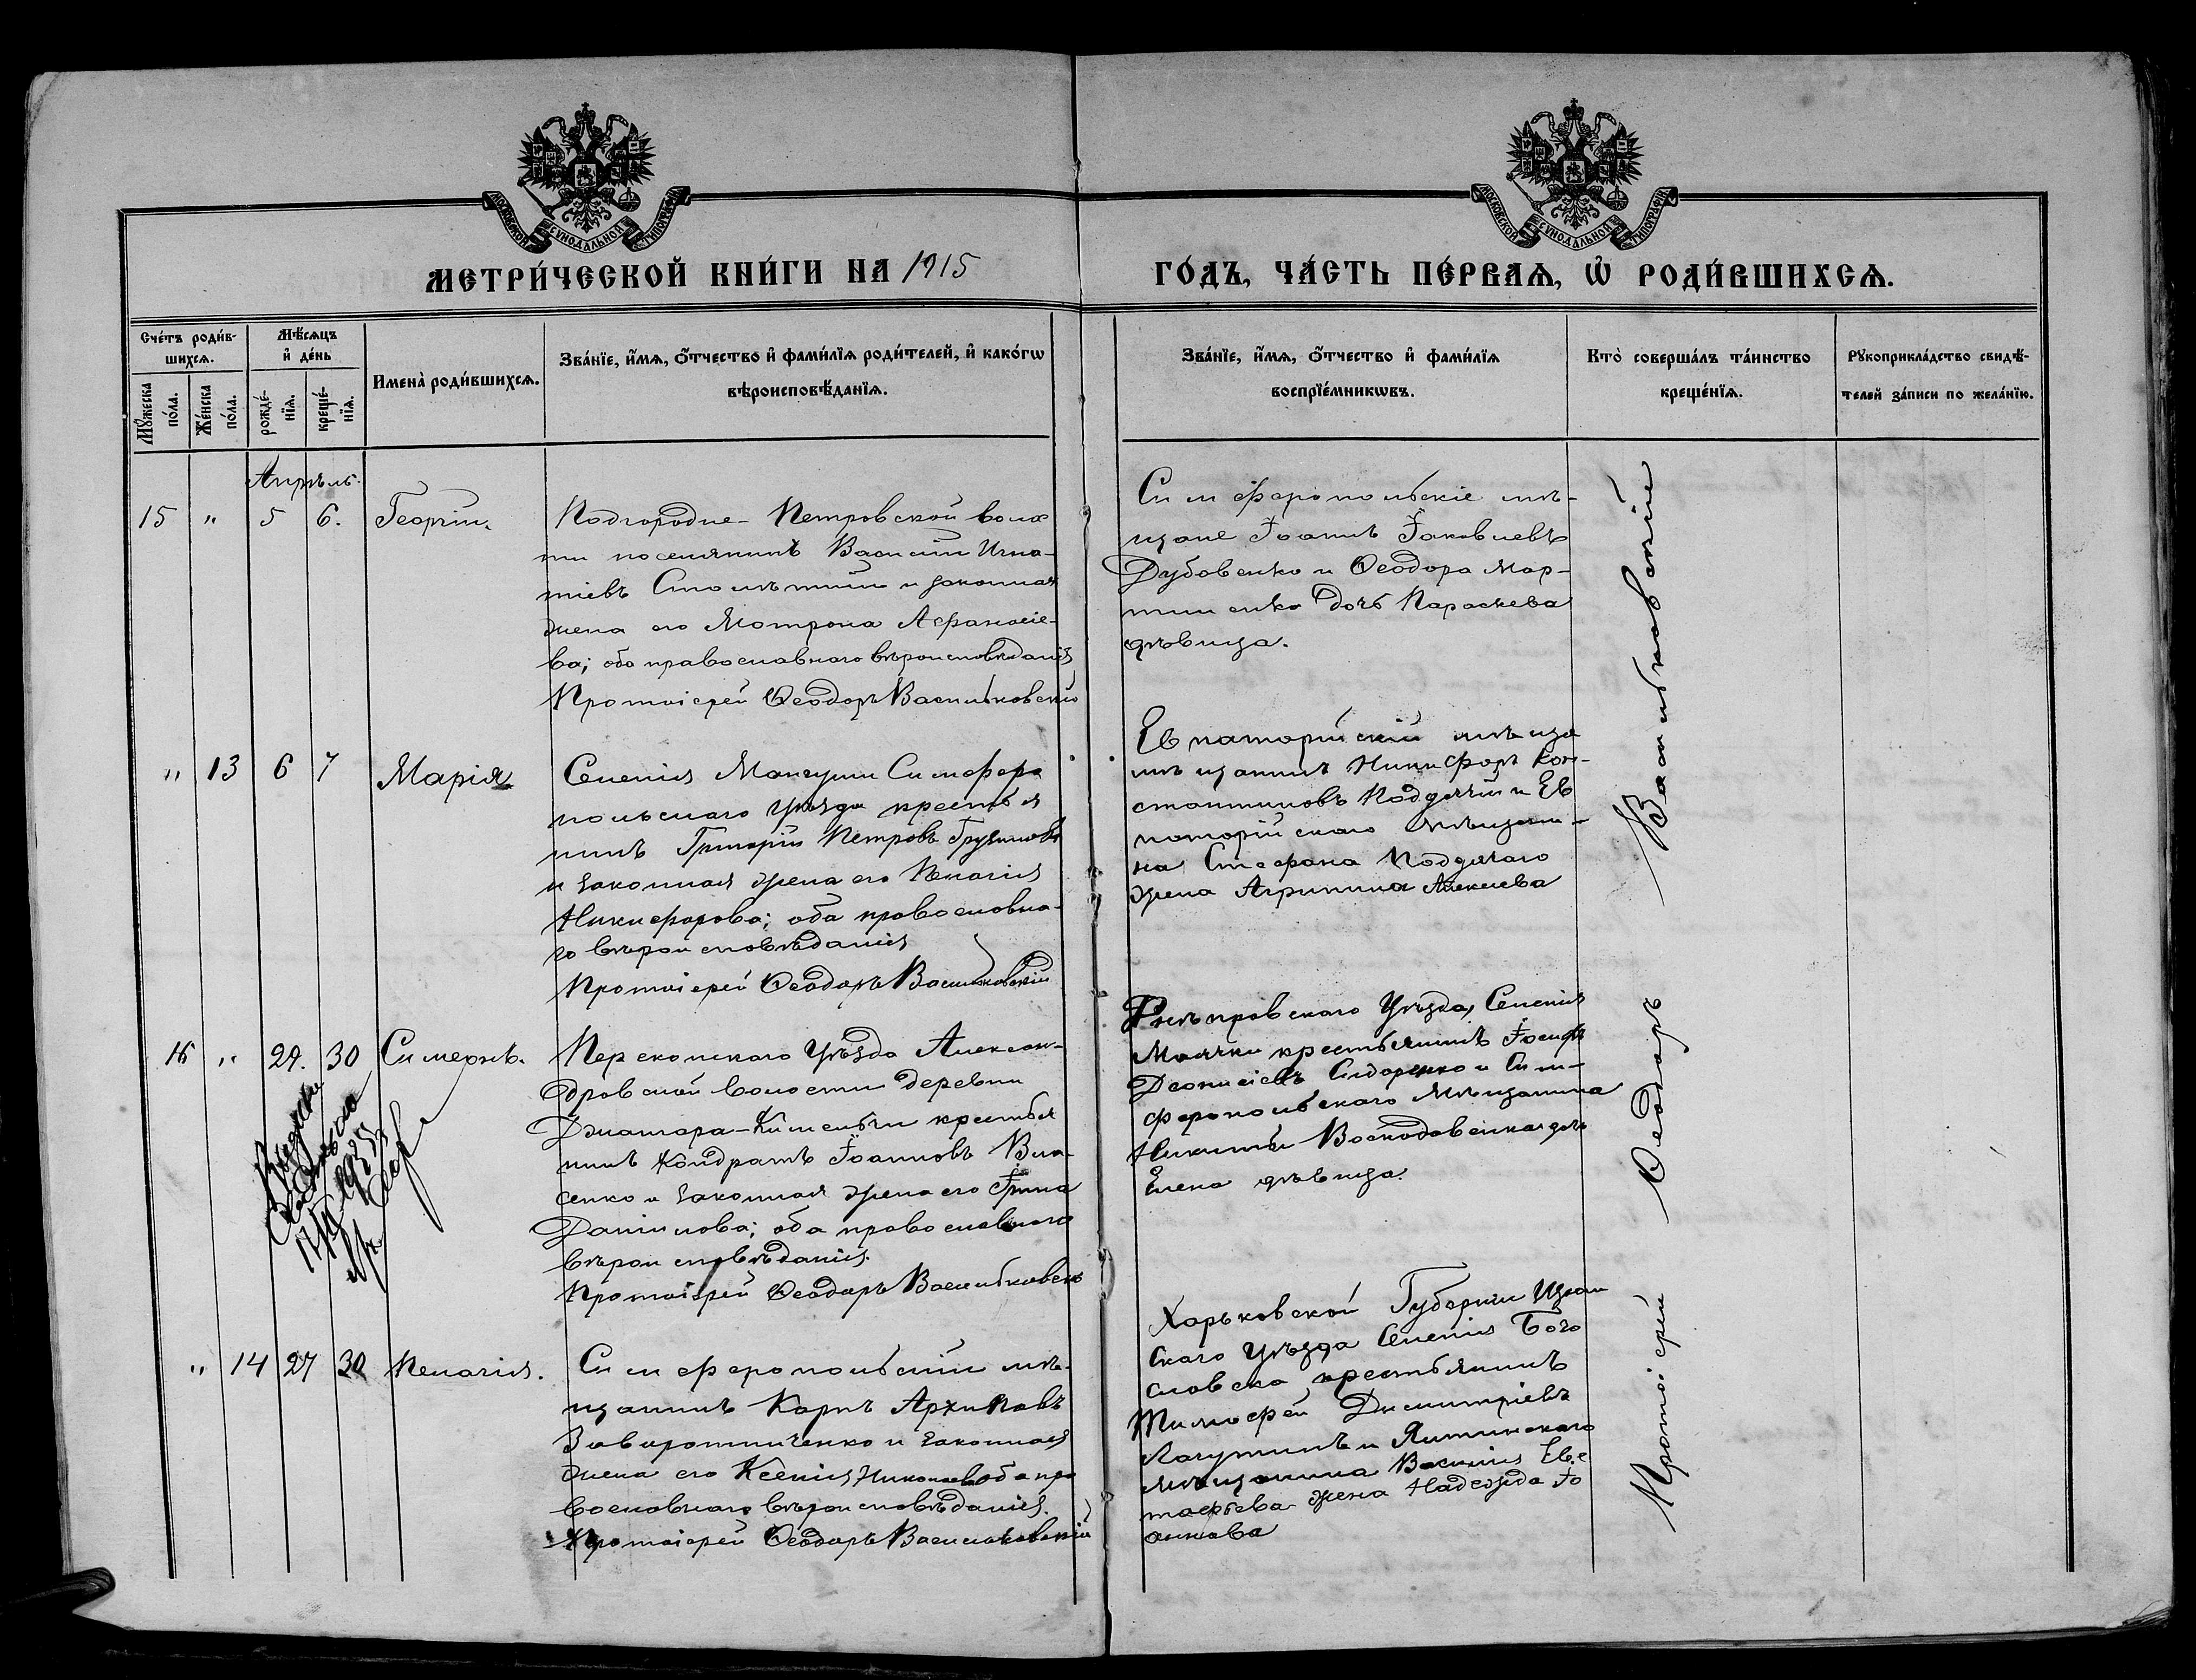 МОСКОВСКОЙ СѴНОДАЛЬНОЙ ТИПОГРАФІИ
МОСКОВСКОЙ СѴНОДАЛЬНОЙ ТИПОГРАФІИ
МЕТРИ́ЧЕСКОЙ КНИ́ГИ НА 1915
ГО́ДЪ, ЧА́СТЬ ПЕ́РВАѦ, Ѿ РОДИ́ВШИХСѦ.
Сче́тъ роди́в-
шихсѧ.
Мꙋ́жеска по́ла.
Же́нска по́ла.
Мѣ́сѧцъ
и҆ де́нь
рожде́-
нїѧ.
креще́-
нїѧ.
Имена̀ роди́вшихсѧ.
Зва́нїе, и҆́мѧ, ѻ҆́тчество и҆ фами́лїѧ роди́телей, и҆ како́гѡ
вѣроисповѣ́данїѧ.
Зва́нїе, и҆́мѧ, ѻ҆́тчество и҆ фами́лїѧ
воспрїе́мникѡвъ.
Кто̀ соверша́лъ та́инство
креще́нїѧ.
Рꙋкоприкла́дство свидѣ́-
телей за́писи по жела́нїю.
Апрѣль.
15 " 5 6. Георгій.
Подгородне-Петровской волос
ти поселянинъ Василій Игна-
тіевъ и законная
жена его Матрона Афанасіе-
ва; оба православнаго вѣроисповѣданія
Протоіерей Ѳеодоръ Васильковскій
Симферопольскіе мѣ-
щане Іоаннъ Іаковлевъ
Дубовенко и Ѳеодора Мар-
тиненко дочь Параскева
дѣвица.
" 13 6 7 Марія
Селенія Мангуши Симферо
польскаго уѣзда крестья
нинъ Григорій Петровъ Грузиновъ
и законная жена его Пелагія
Никифорова; оба православна-
го вѣроисповѣданія
Протоіерей Ѳеодоръ Васильковскій
Евпаторійскій мѣща
мѣщанинъ Никифоръ Кон-
стантиновъ Поддячій и Ев
паторійскаго мѣщани-
на Стефана Поддячаго
жена Агриппина Алексеева
16 " 29. 30 Симеонъ.
Перекопскаго уѣзда Алексан-
дровской волости деревни
крестья
нинъ Кондратъ Іоанновъ Вла-
сенко и законная жена его Ірина
Даніилова; оба православнаго
вѣроисповѣданія.
Протоіерей Ѳеодоръ Васильковскій
Днѣпровскаго Уѣзда, Селенія
Маячки крестьянинъ Іосифъ
Діонисіевъ Сидоренко и Сим-
феропольскаго Мѣщанина
Никиты дочь
Елена дѣвица.
" 14 27 30 Пелагія.
Симферопольскій мѣ-
щанинъ Карпъ Архиповъ
Заворотниченко и законная
жена его Ксенія Николаева оба пра
вославнаго вѣроисповѣданія.
Протоіерей Ѳеодоръ Васильковскій
Харьковской Губерніи Изюм
скаго уѣзда Селенія Бого
словска крестьянинъ
Тимофей Димитріевъ
Лагутинъ и Ялтинскаго
мѣщанина Василія Евс
тафьева жена Надежда Іо
аннова
Протоіерей Ѳеодоръ Васильковскій